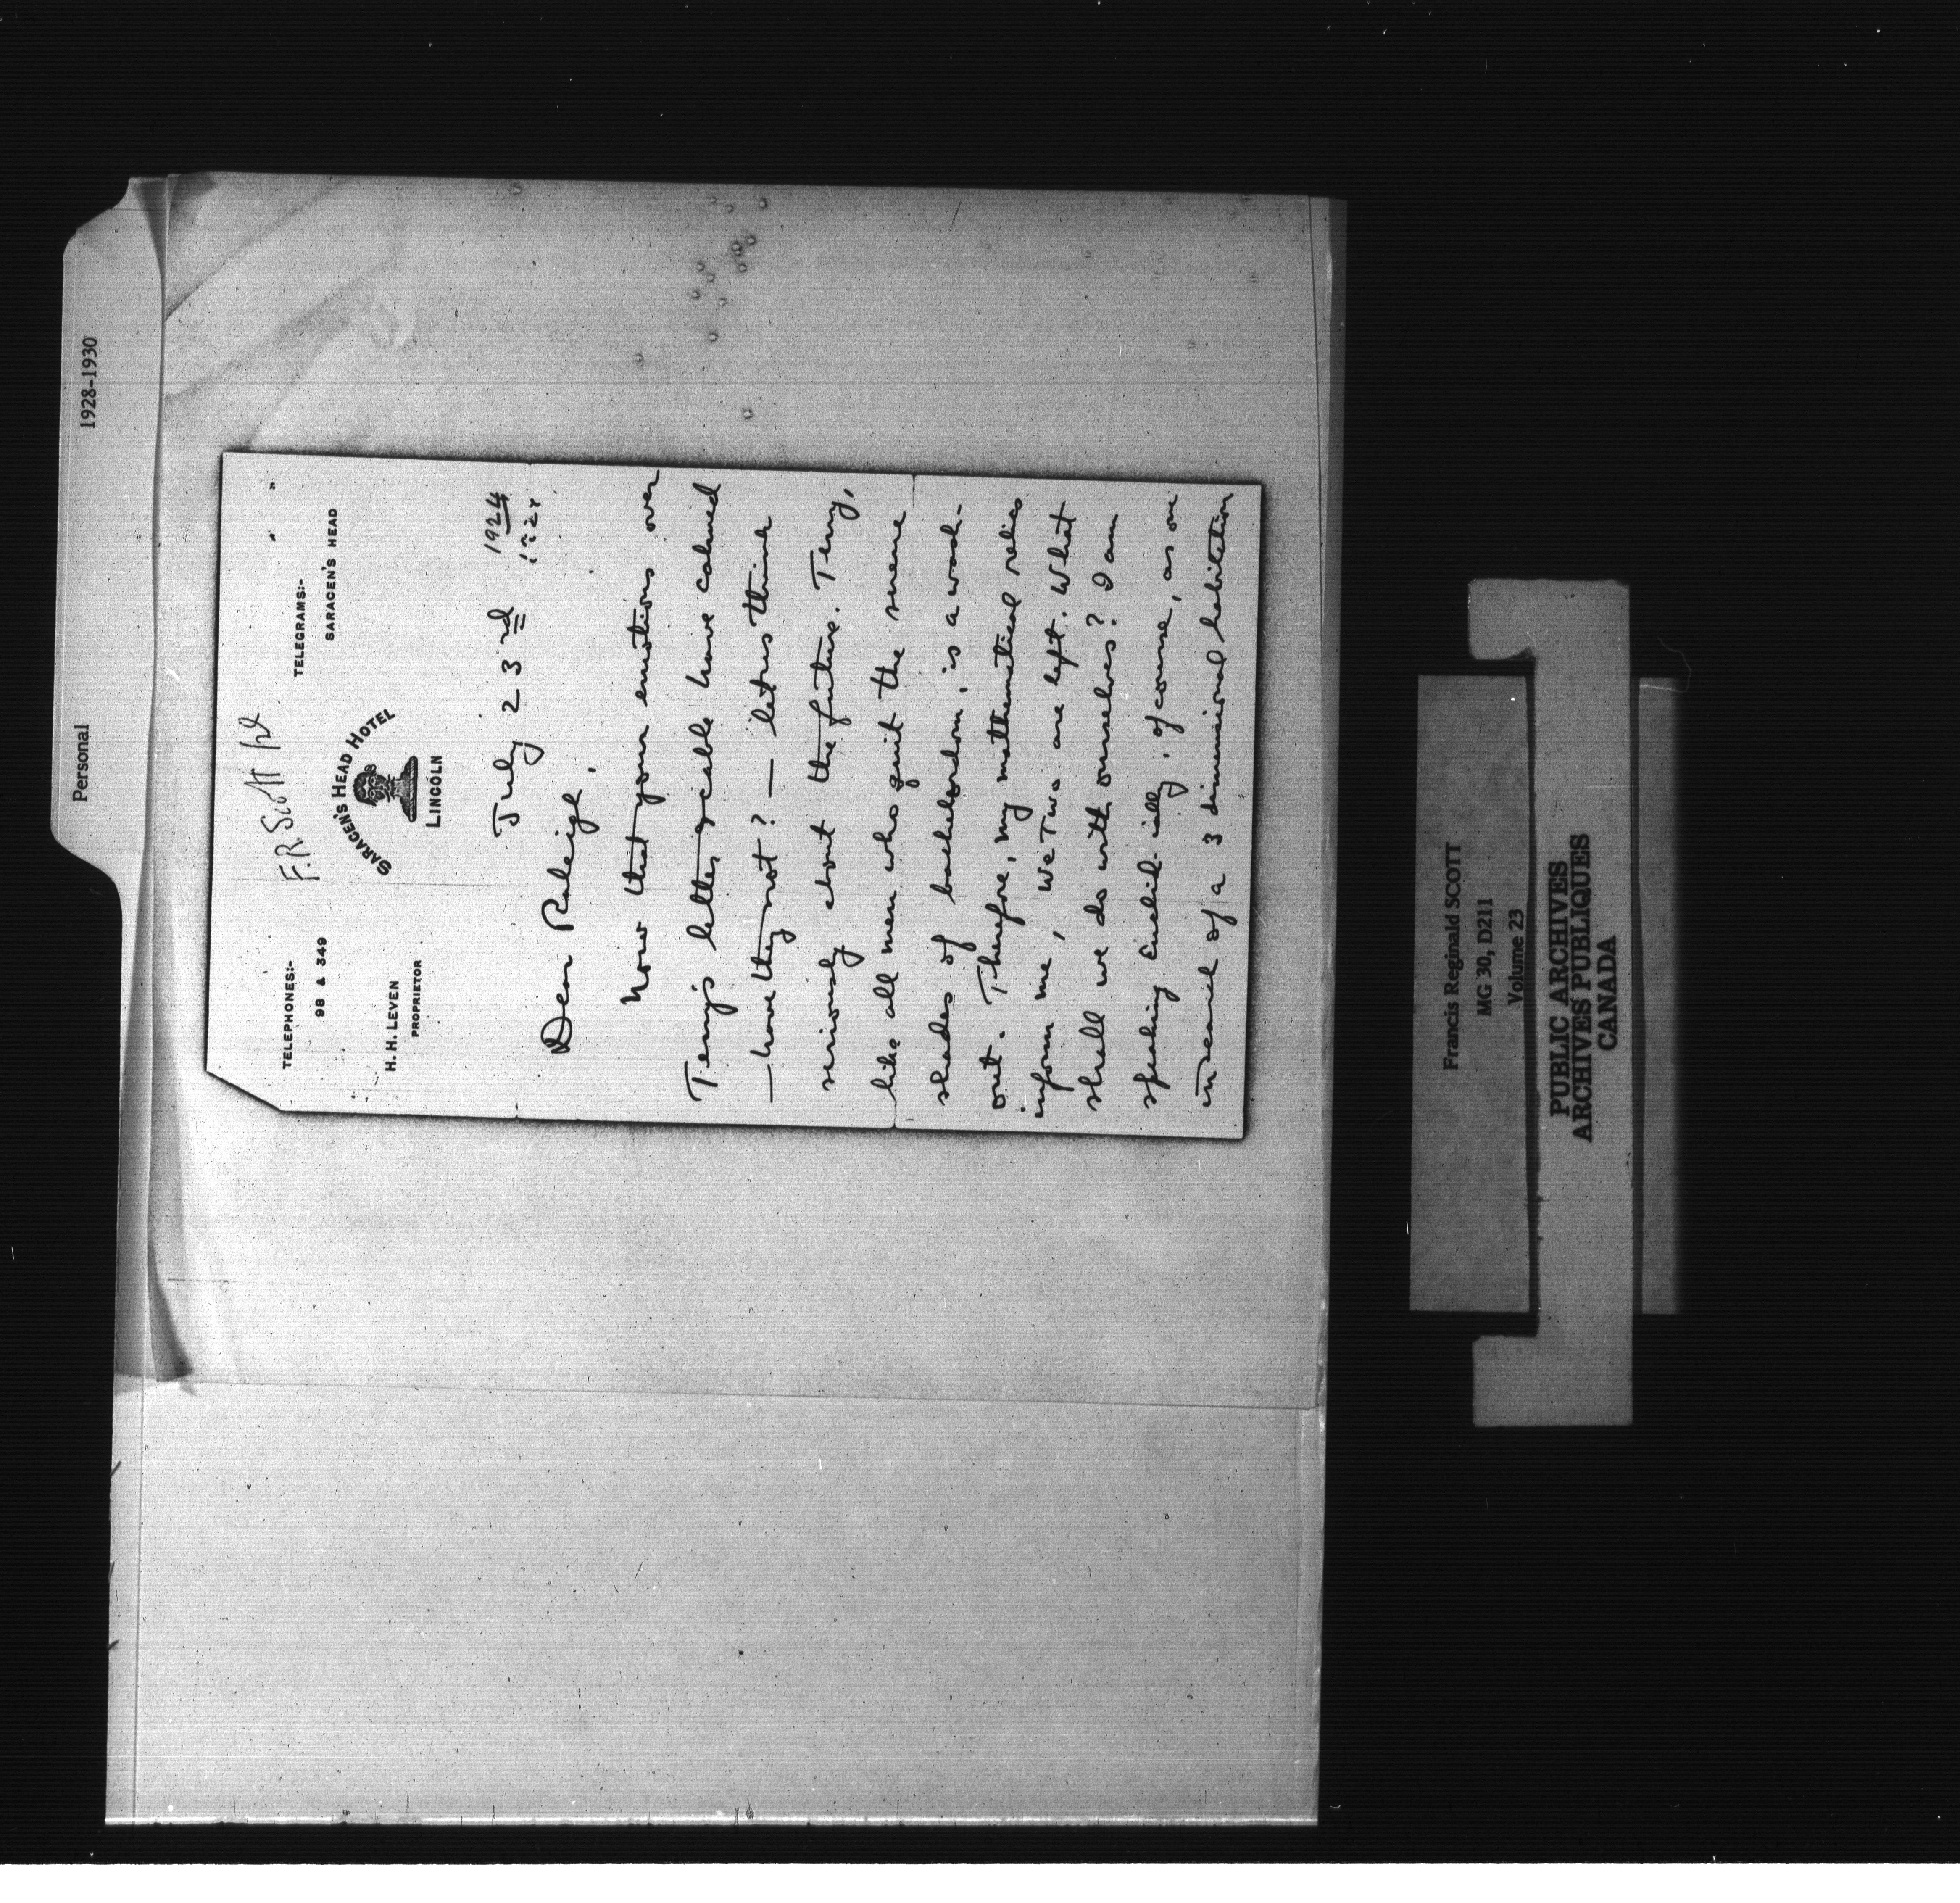 Personal
1928-1930
F.R. Scott
TELEPHONES:-
98 & 349
TELEGRAMS:-
" "
SARACEN'S HEAD
SARACEN'S HEAD HOTEL
LINCOLN
H. H. LEVEN
PROPRIETOR
July 23rd 1924
Dear Raleigh,
Now that your emotions over
Terry's letter have calmed
— have they not? — let us think
seriously about the future. Terry,
like all men who quit the serene
shades of bachelordom, is a wash-
out. Therefore, my mathematical relics
inform me, we Two are left. What
shall we do with ourselves? I am
speaking Euclid-ially, of course, as one
in search of a 3 dimensional habitation
Francis Reginald SCOTT
MG 30, D211
Volume 23
PUBLIC ARCHIVES
ARCHIVES PUBLIQUES
CANADA